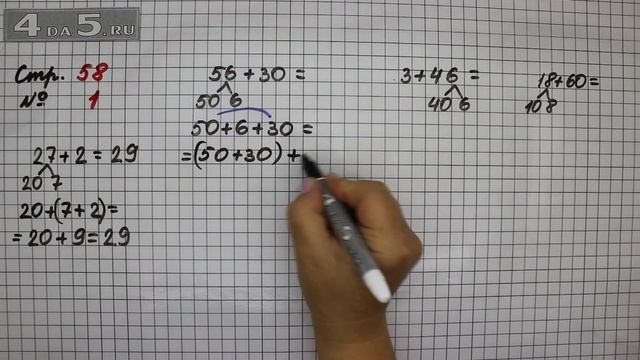 4 DA 5.RU
Стр. 58
№ 1
27 + 2 = 29
20 7
20 + (7 + 2) =
= 20 + 9 = 29
56 + 30 =
50 6
50 + 6 + 30 =
= (50 + 30) +
3 + 46 =
40 6
18 + 60 =
10 8